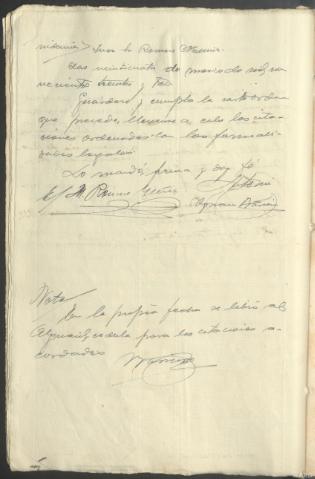 Juez Sr. Ramon
das veinticuatro de marzo de mil no
vecientos treinta y tres
Guárdese y cumpla la carta orden
que precede, llévense a cabo las cita
ciones ordenadas con las formali
dades legales.
Lo mandó, firma y doy fé
Ramon
Nota
En la propia fecha se libró al
Alguacil, cedula para las citaciones a
cordadas